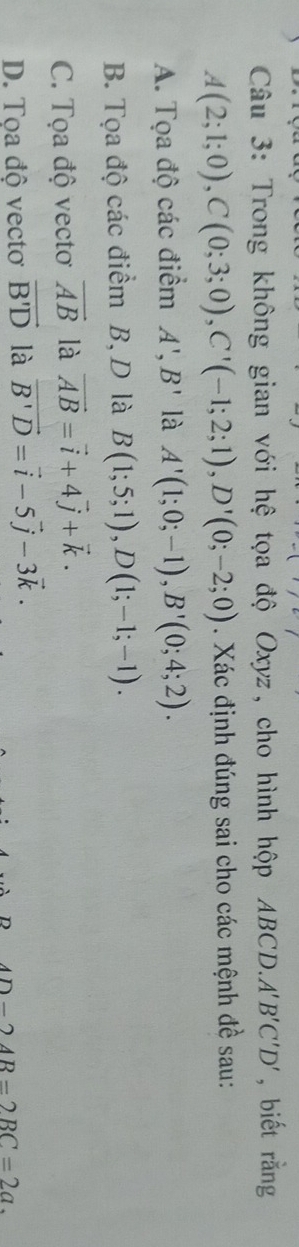 Câu 3: Trong không gian với hệ tọa độ Oxyz, cho hình hộp ABCD.A'B'C'D', biết rằng
A(2;1;0), C(0;3;0), C'(-1;2;1), D'(0;-2;0). Xác định đúng sai cho các mệnh đề sau:
A. Tọa độ các điểm A', B' là A'(1;0;-1), B'(0;4;2).
B. Tọa độ các điểm B, D là B(1;5;1), D(1;-1;-1).
C. Tọa độ vectơ \overrightarrow{AB} là \overrightarrow{AB} = \vec{i} + 4\vec{j} + \vec{k}.
D. Tọa độ vectơ \overrightarrow{B'D} là \overrightarrow{B'D} = \vec{i} - 5\vec{j} - 3\vec{k}.
B, AD = 2AB = 2BC = 2a,